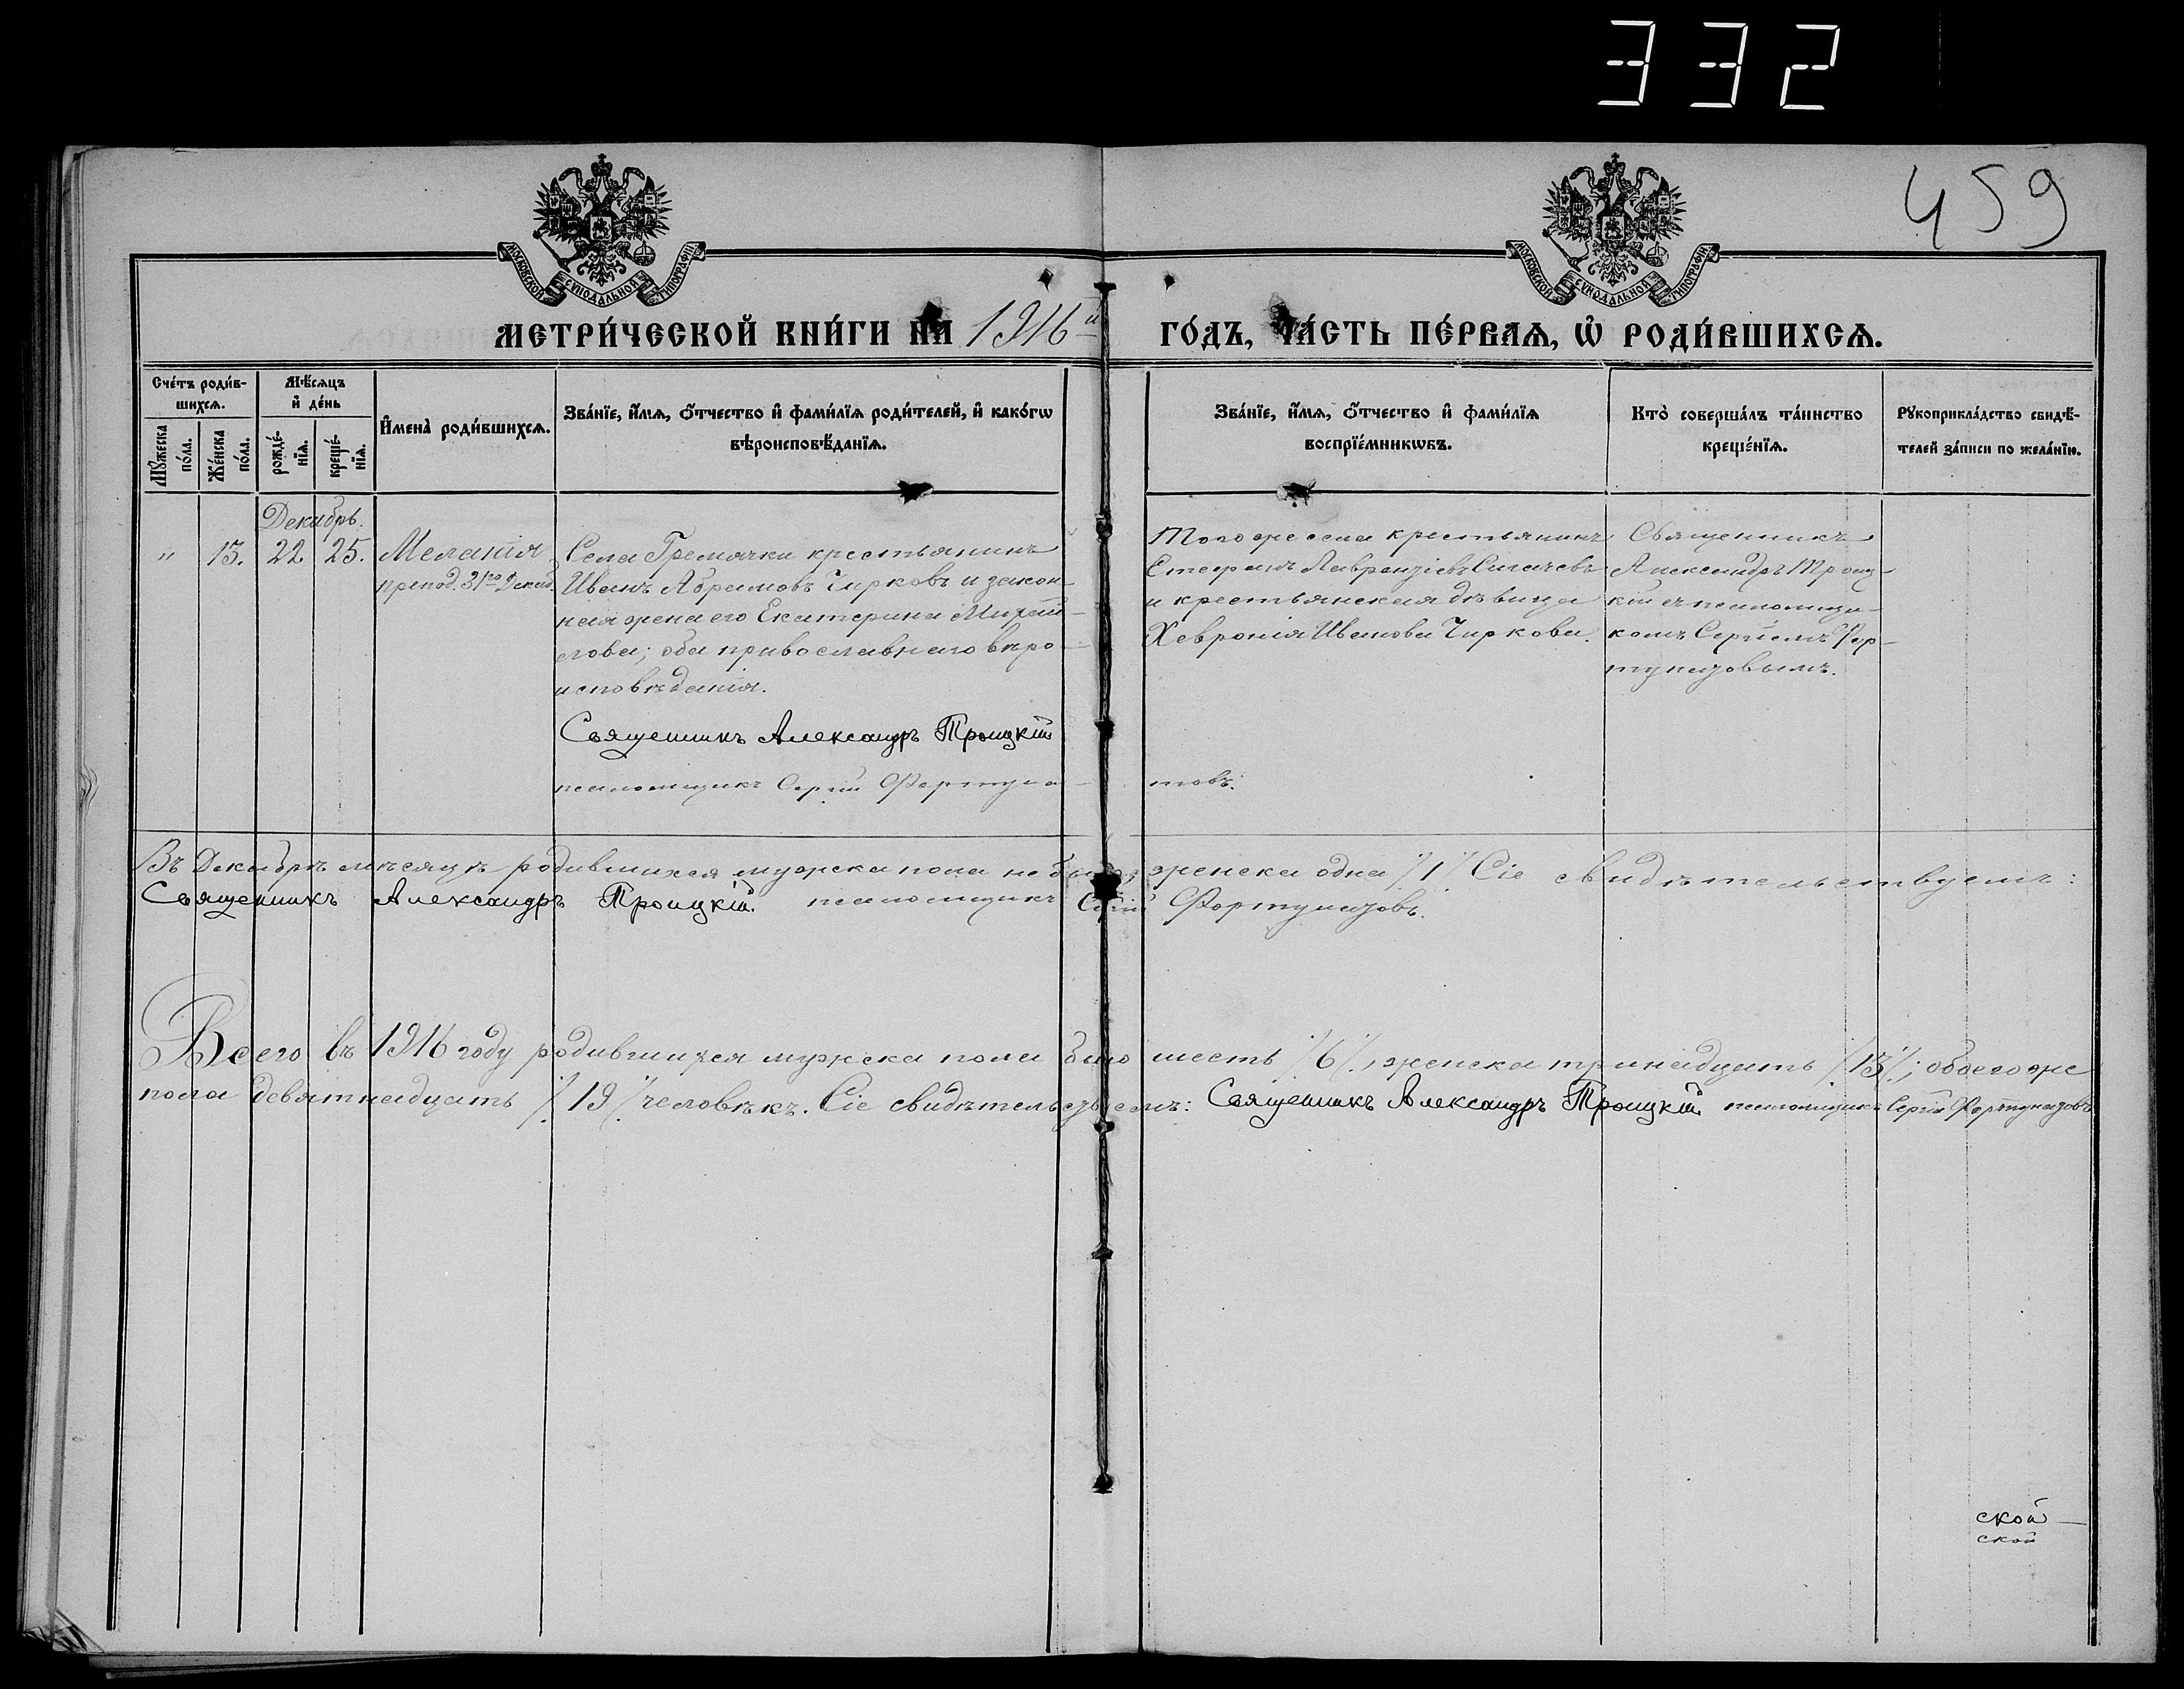 332
459
МОСКОВСКОЙ СѴНОДАЛЬНОЙ ТИПОГРАФІИ
МОСКОВСКОЙ СѴНОДАЛЬНОЙ ТИПОГРАФІИ
МЕТРИ́ЧЕСКОЙ КНИ́ГИ НА 1916й ГО́ДЪ, ЧА́СТЬ ПЕ́РВАѦ, Ѡ҆ РОДИ́ВШИХСѦ.
Сче́тъ роди́в-
шихсѧ.
Мѣ́сѧцъ
и҆ де́нь
Мꙋ́жеска
по́ла.
Же́нска
по́ла.
рожде́-
нїѧ.
креще́-
нїѧ.
И҆мена̀ роди́вшихсѧ.
Зва́нїе, и҆́мѧ, ѻ҆́тчество и҆ фами́лїѧ роди́телей, и҆ како́гѡ
вѣроисповѣ́данїѧ.
Зва́нїе, и҆́мѧ, ѻ҆́тчество и҆ фами́лїѧ
воспрїе́мникѡвъ.
Кто̀ соверша́лъ та́инство
креще́нїѧ.
Рꙋкоприкла́дство свидѣ́-
телей за́писи по жела́нїю.
Декабрь.
" 13. 22 25.
Меланія
препод. 31го Декаб.
Села Гремячки крестьянинъ
Иванъ Абрамовъ Чирковъ и закон-
ная жена его Екатерина Михай-
лова; оба православнаго вѣро-
исповѣданія.
Священникъ Александръ Троицкій
псаломщикъ Сергій Фортуна-
товъ.
Того же села крестьянинъ
Стефанъ Лаврентіевъ
и крестьянская дѣвица
Хевронія Иванова Чиркова.
Священникъ
Александръ Троиц-
кій съ псаломщи-
комъ Сергіемъ Фор-
тунатовымъ.
Въ Декабрѣ мѣсяцѣ родившихся мужска пола не было, женска одна /1/. Сіе свидѣтельствуемъ:
Священникъ Александръ Троицкій. псаломщикъ Сергій Фортунатовъ.
Всего въ 1916 году родившихся мужска пола было шесть /6/, женска тринадцать /13/; обоего же
пола девятнадцать /19/ человѣкъ. Сіе свидѣтельствуемъ: Священникъ Александръ Троицкій псаломщикъ Сергій Фортунатовъ
ской
ской